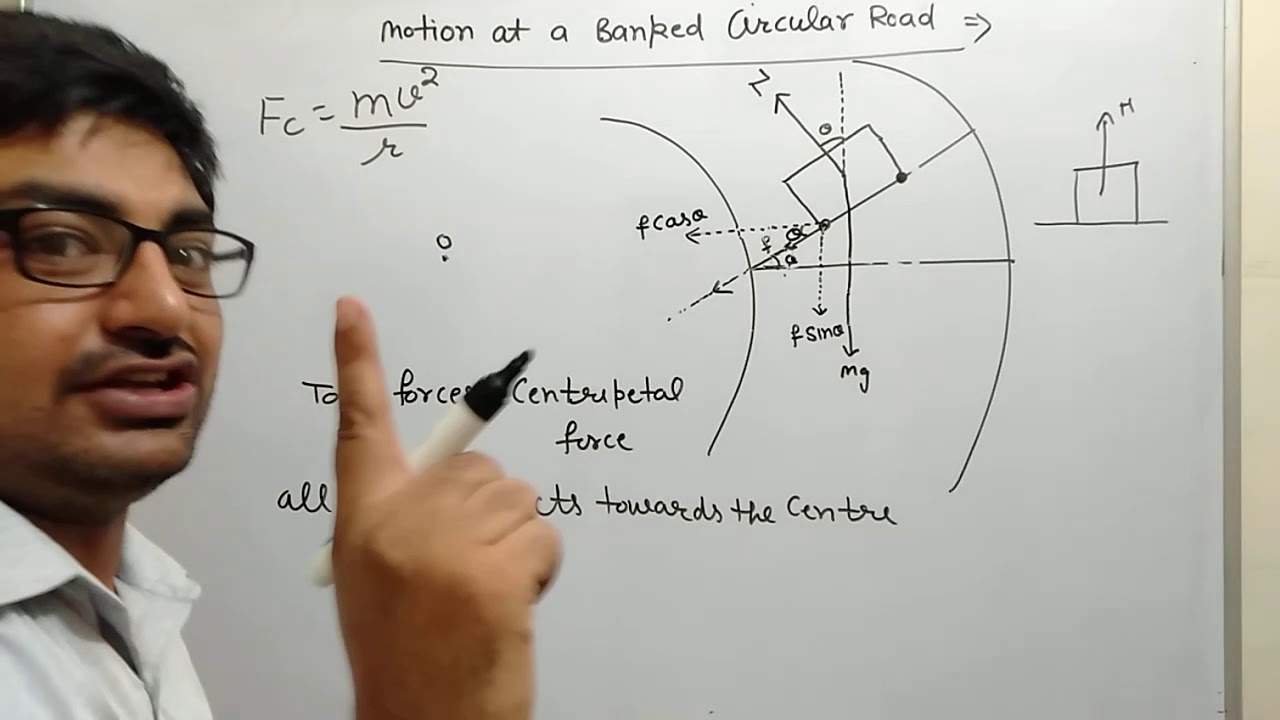 Motion at a Banked Circular Road ⇒
Fc = mv²
r
N
θ
N
fcosθ
f
θ
θ
fsinθ
mg
To force Centripetal
force
all cts towards the Centre